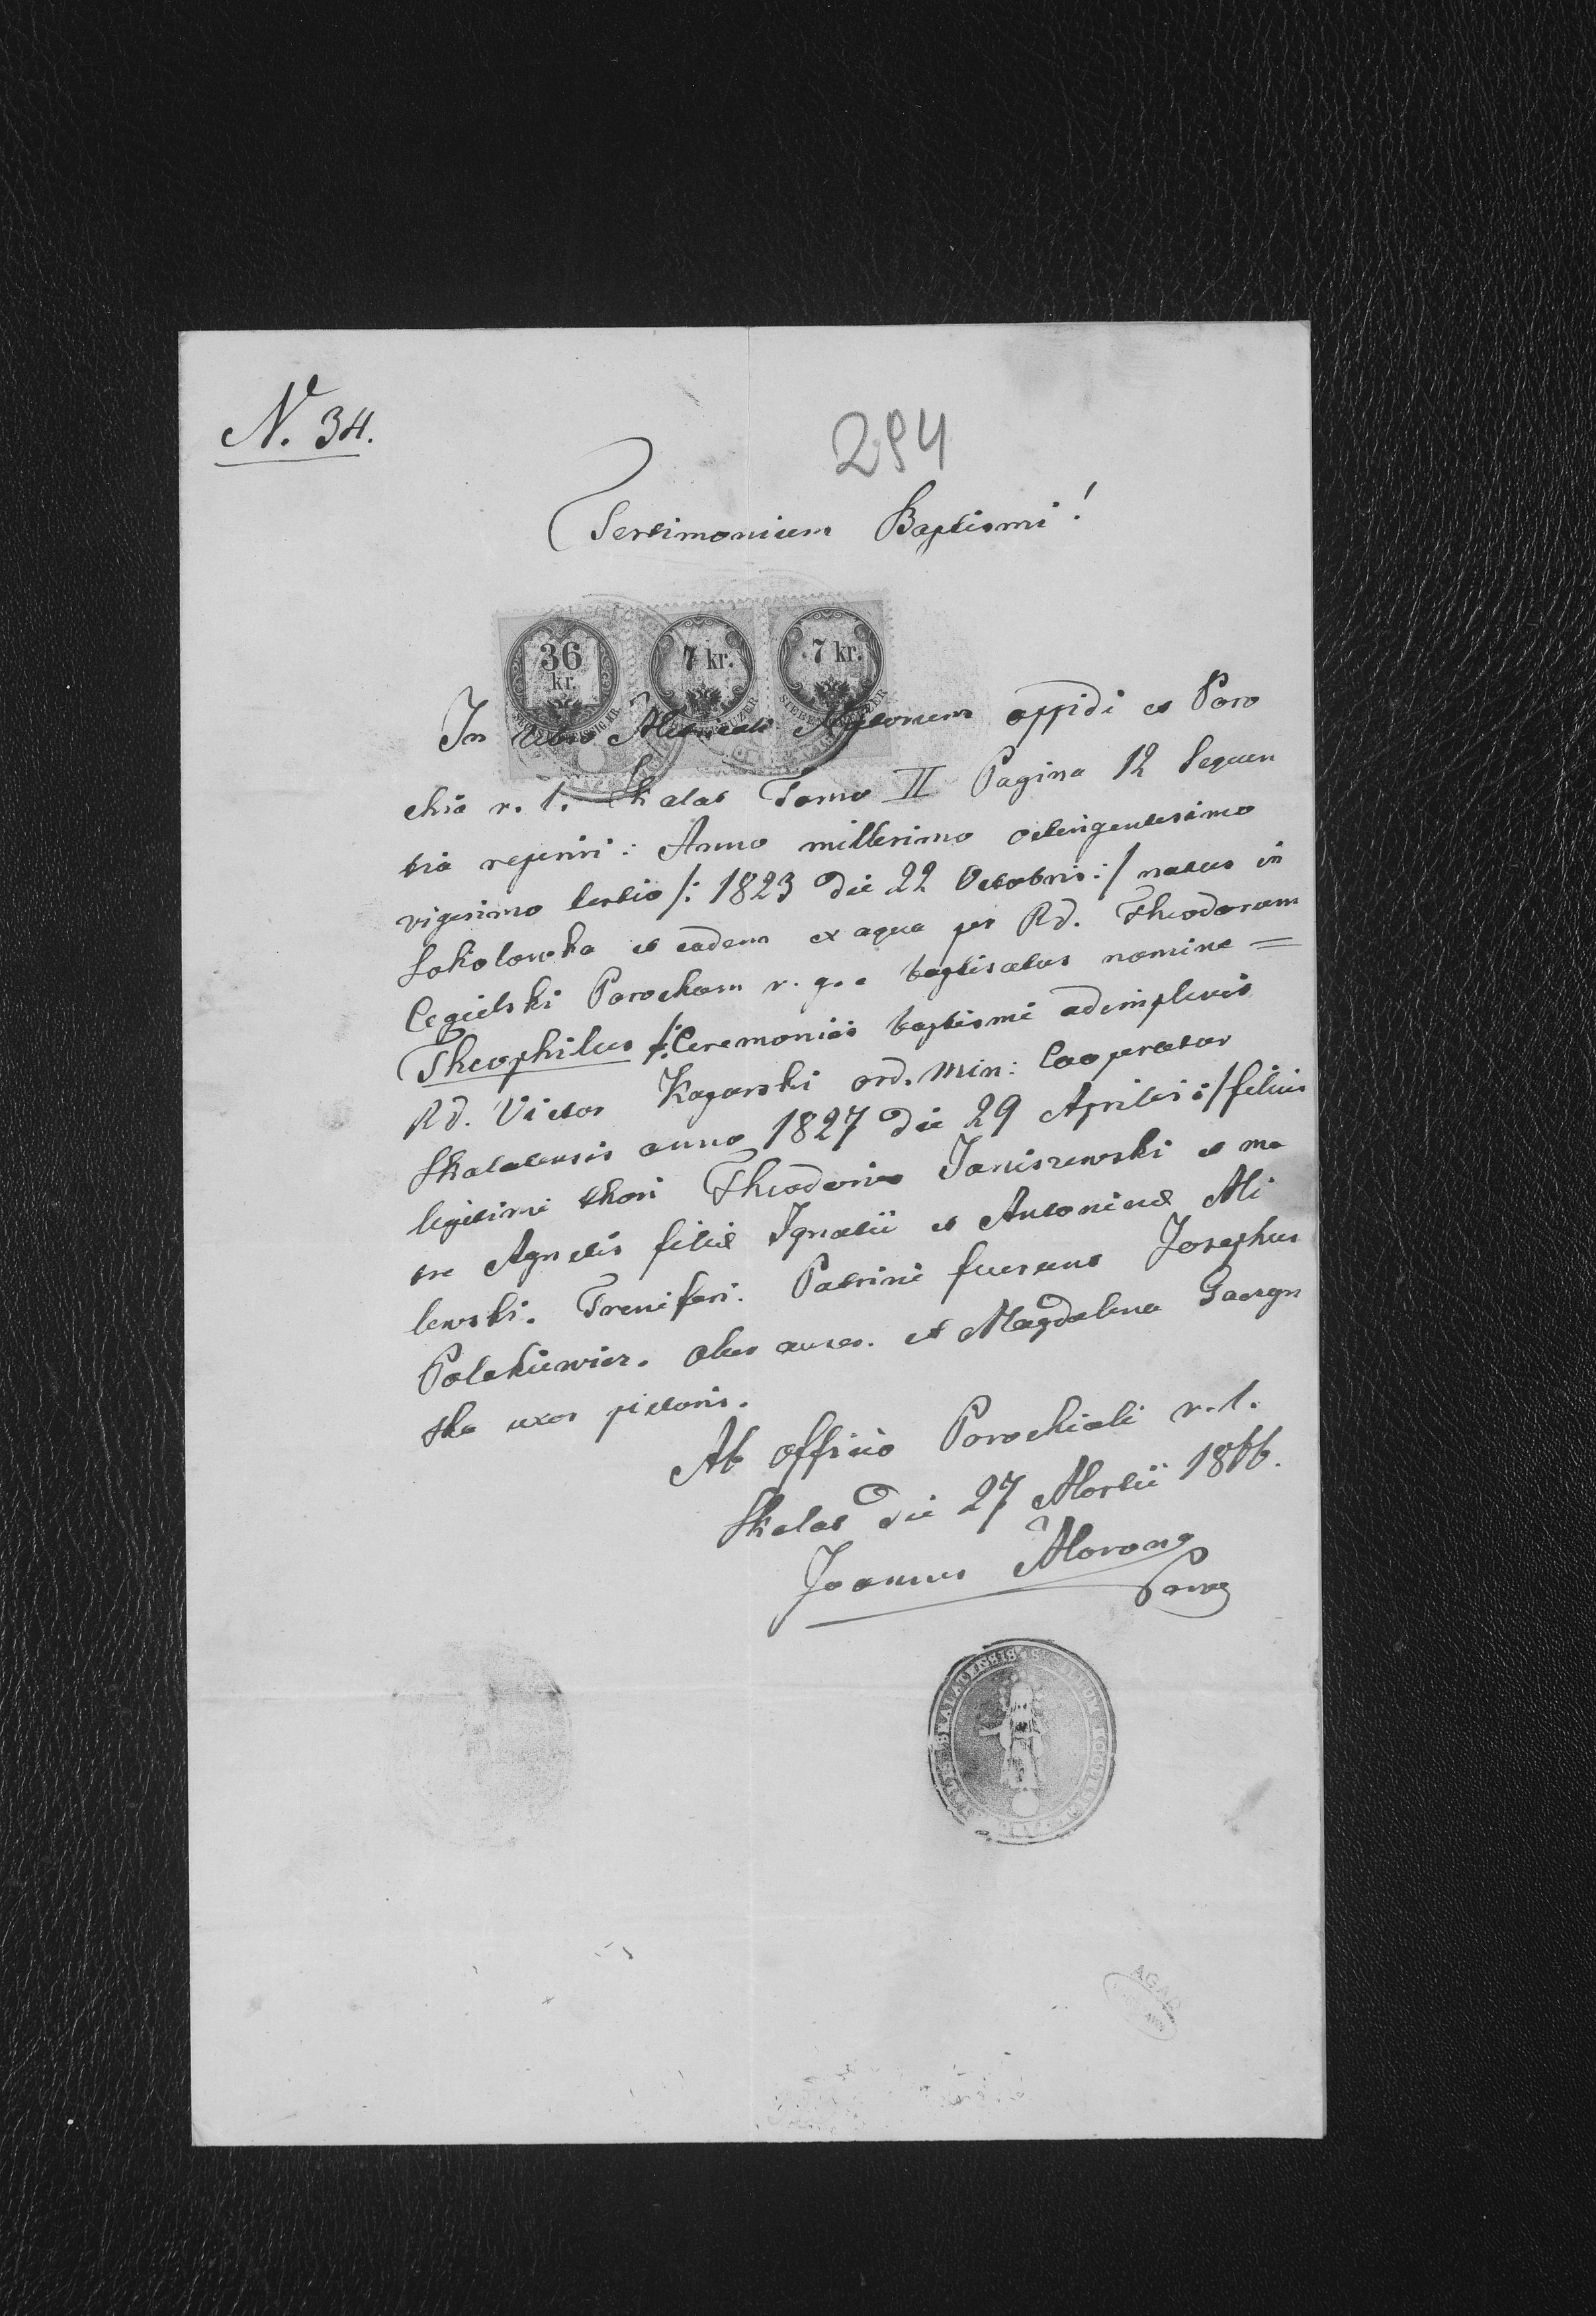 N. 34.
294
Testimonium Baptismi!
36 kr.
7 kr.
7 kr.
In Libro Metricali Natorum oppidi et Paro
chia r. l. Skalat Tomo II Pagina 12 Sequen
tia reperiri: Anno millesimo octingentesimo
vigesimo tertio /: 1823 die 22 Octobris :/ natus in
Sokolowka et eadem ex aqua per Rd. Theodorum
Cegielski Parochum r. g. c baptisatus nomine =
Theophilus /: Ceremonias baptismi adimplevit
Rd. Victor Kagarski ord. Min: Cooperator
Skalatensis anno 1827 die 29 Aprilis :/ filius
legitimi thori Theodorus Janiszewski et ma
tre Agnetis filiæ Ignatii et Antoninæ Mi
lewski. Patrini fuerunt Josephus
Polakiewicz. et Magdalena
ska uxor pictoris.
Ab officio Parochiali r. l.
Skalat die 27 Martii 18
Joannes Morong
Paroch
SKALATENSIS
AGAD